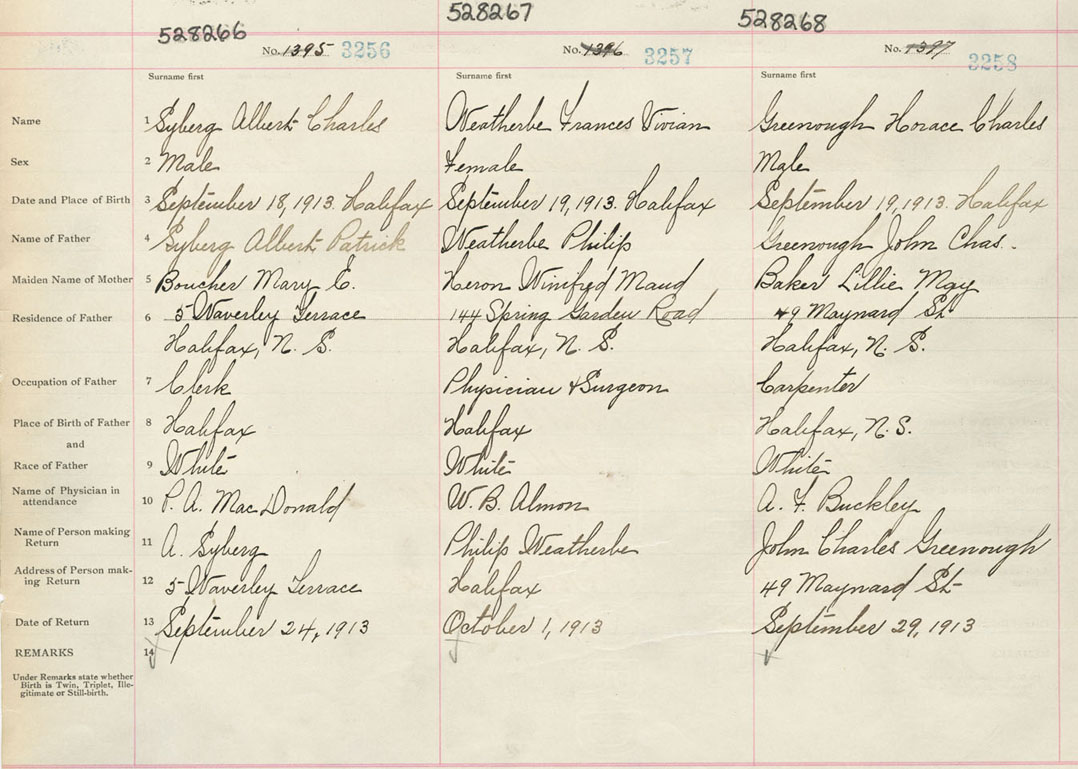 528266 528267 528268
No. 1395 3256 No. 1396 3257 No. 1397 3258
Surname first Surname first Surname first
Name 1 Syberg Albert Charles Weatherbe Frances Vivian Greenough Horace Charles
Sex 2 Male Female Male
Date and Place of Birth 3 September 18, 1913. Halifax September 19, 1913. Halifax September 19, 1913. Halifax
Name of Father 4 Syberg Albert Patrick Weatherbe Philip Greenough John Chas.
Maiden Name of Mother 5 Boucher Mary E. Heron Winifred Maud Baker Lillie May
Residence of Father 6 5 Waverley Terrace 144 Spring Garden Road 49 Maynard St
Halifax, N. S. Halifax, N. S. Halifax, N. S.
Occupation of Father 7 Clerk Physician & Surgeon Carpenter
Place of Birth of Father 8 Halifax Halifax Halifax, N. S.
and
Race of Father 9 White White White
Name of Physician in
attendance 10 P. A. MacDonald W. B. Almon A. F. Buckley
Name of Person making
Return 11 A. Syberg Philip Weatherbe John Charles Greenough
Address of Person mak-
ing Return 12 5 Waverley Terrace Halifax 49 Maynard St
Date of Return 13 September 24, 1913 October 1, 1913 September 29, 1913
REMARKS 14
Under Remarks state whether
Birth is Twin, Triplet, Ille-
gitimate or Still-birth.